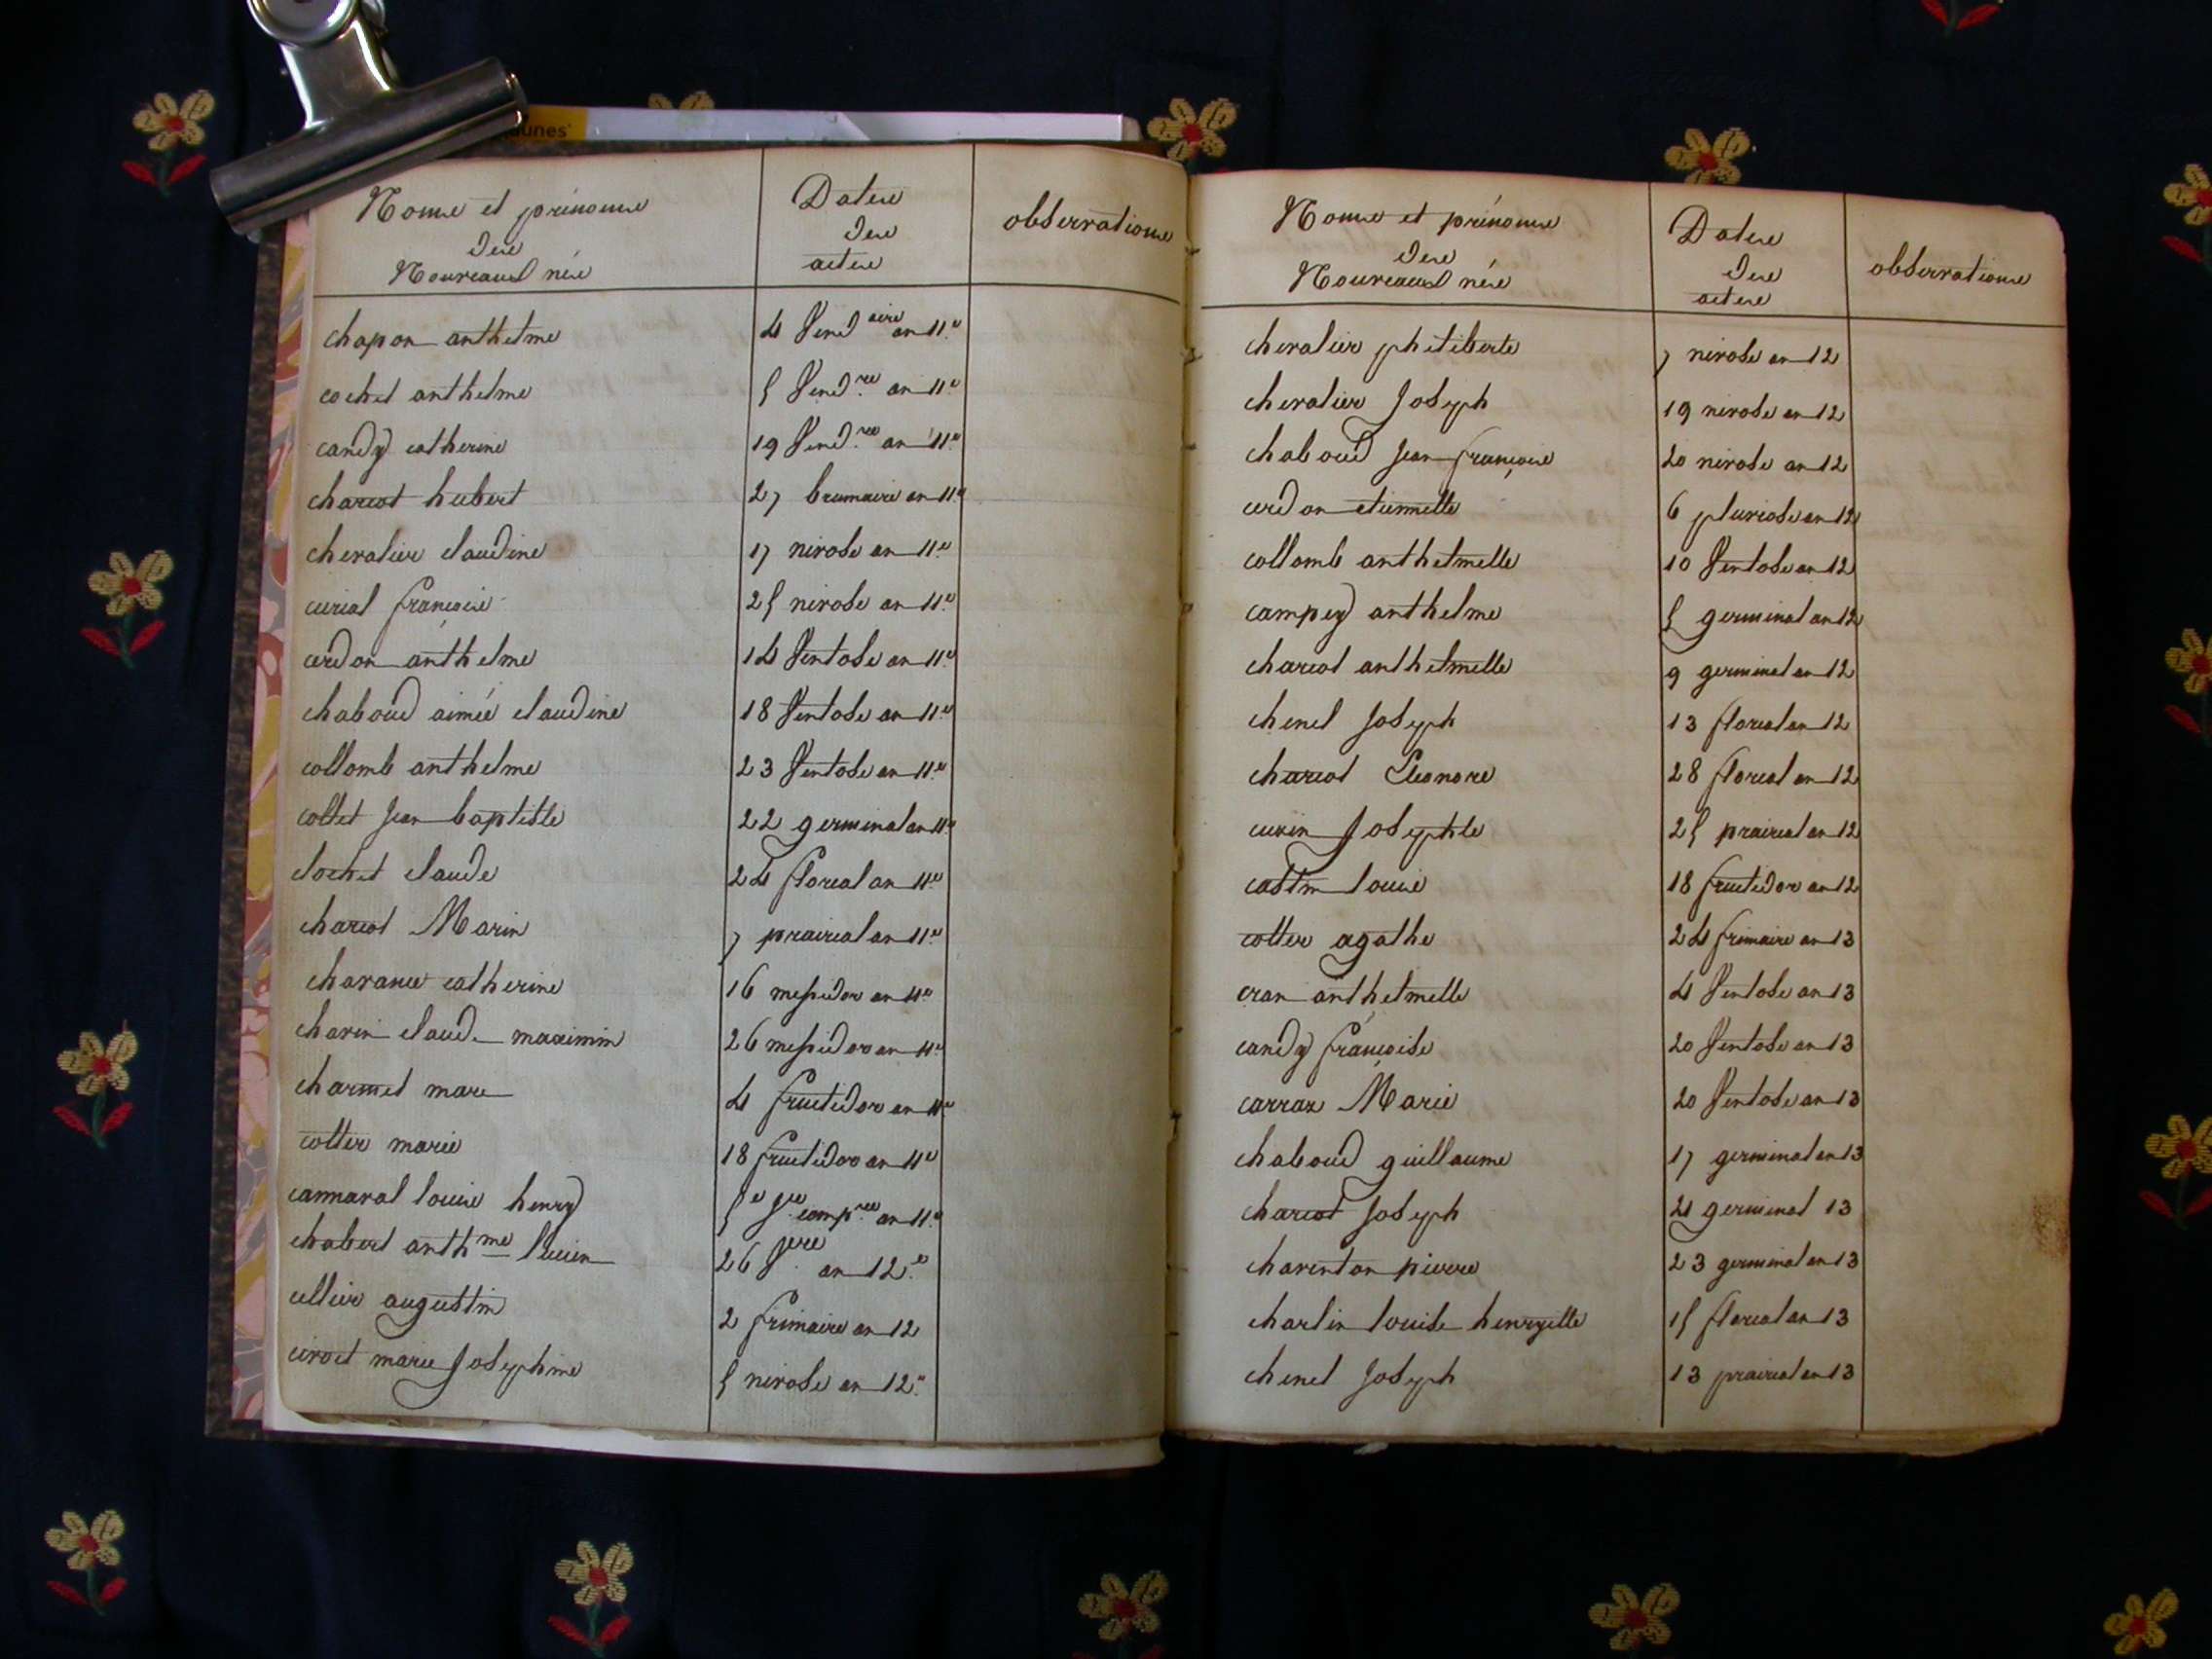 aunes
Noms et prénoms
des
Nouveaux nés
Dates
des
actes
observations
chapon anthelme 4 Vend.aire an 11.e
cochet anthelme 5 Vend.re an 11.e
candy catherine 19 Vend.re an 11.e
charcot hubert 27 brumaire an 11.e
chevalier claudine 17 nivose an 11.e
curial françois 25 nivose an 11.e
cerdon anthelme 14 Ventose an 11.e
chaboud aimée claudine 18 Ventose an 11.e
collomb anthelme 23 Ventose an 11.e
collet jean baptiste 22 germinal an 11.e
clochet claude 24 floreal an 11.e
charcot Marin 7 prairial an 11.e
charance catherine 16 messidor an 11.e
charin claude maximin 26 messidor an 11.e
charmet marc 4 fructidor an 11.e
cotter marie 18 fructidor an 11.e
cannaval louis henry 5.e comp.re an 11.e
chabert anth.me lucien 26 an 12.e
cellier augustin 2 frimaire an 12
ciroct marie Josephine 5 nivose an 12.e
Noms et prénoms
des
Nouveaux nés
Dates
des
actes
observations
chevalier philiberte 7 nivose an 12
chevalier Joseph 19 nivose an 12
chaboud Jean françois 20 nivose an 12
cerdon etiennette 6 pluviose an 12
collomb anthelmette 10 Ventose an 12
campey anthelme 5 germinal an 12
charcot anthelmette 9 germinal an 12
chenel Joseph 13 floreal an 12
charcot Eleonore 28 floreal an 12
cuzin Josephte 25 prairial an 12
castin louis 18 fructidor an 12
cotter agathe 24 frimaire an 13
cran anthelmette 4 Ventose an 13
candy françoise 20 Ventose an 13
carraz Marie 20 Ventose an 13
chaboud guillaume 17 germinal an 13
charcot Joseph 21 germinal 13
charinton pierre 23 germinal an 13
charlin louise henryette 15 floreal an 13
chenel Joseph 13 prairial an 13